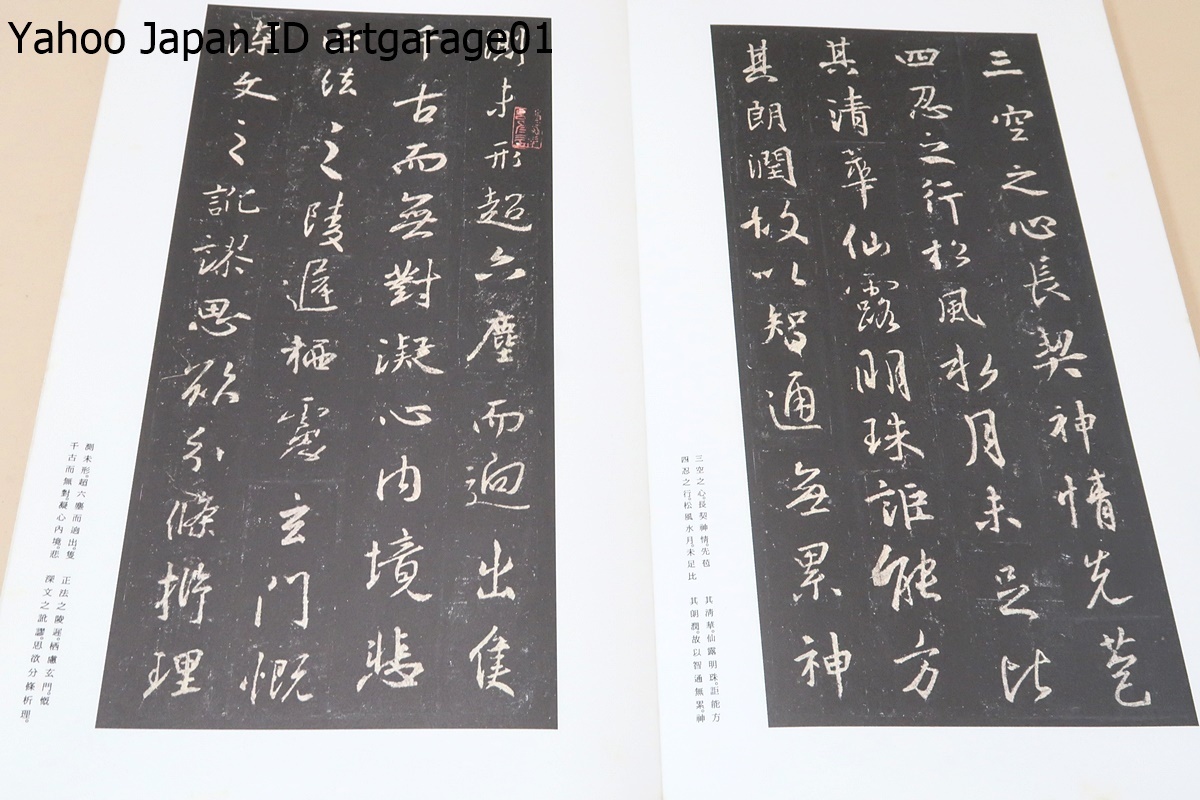 Yahoo Japan ID artgarage01
三空之心長契神情先苞
四忍之行松風水月未足比
其清華仙露明珠詎能方
其朗潤故以智通無累神
三空之心。長契神情。先苞
四忍之行。松風水月。未足比
其清華。仙露明珠。詎能方
其朗潤。故以智通無累。神
測未形超六塵而迥出隻
千古而無對凝心內境悲
正法之陵遲栖慮玄門慨
深文之訛謬思欲分條析理
測未形。超六塵而迥出。隻
千古而無對。凝心內境。悲
正法之陵遲。栖慮玄門。慨
深文之訛謬。思欲分條析理。